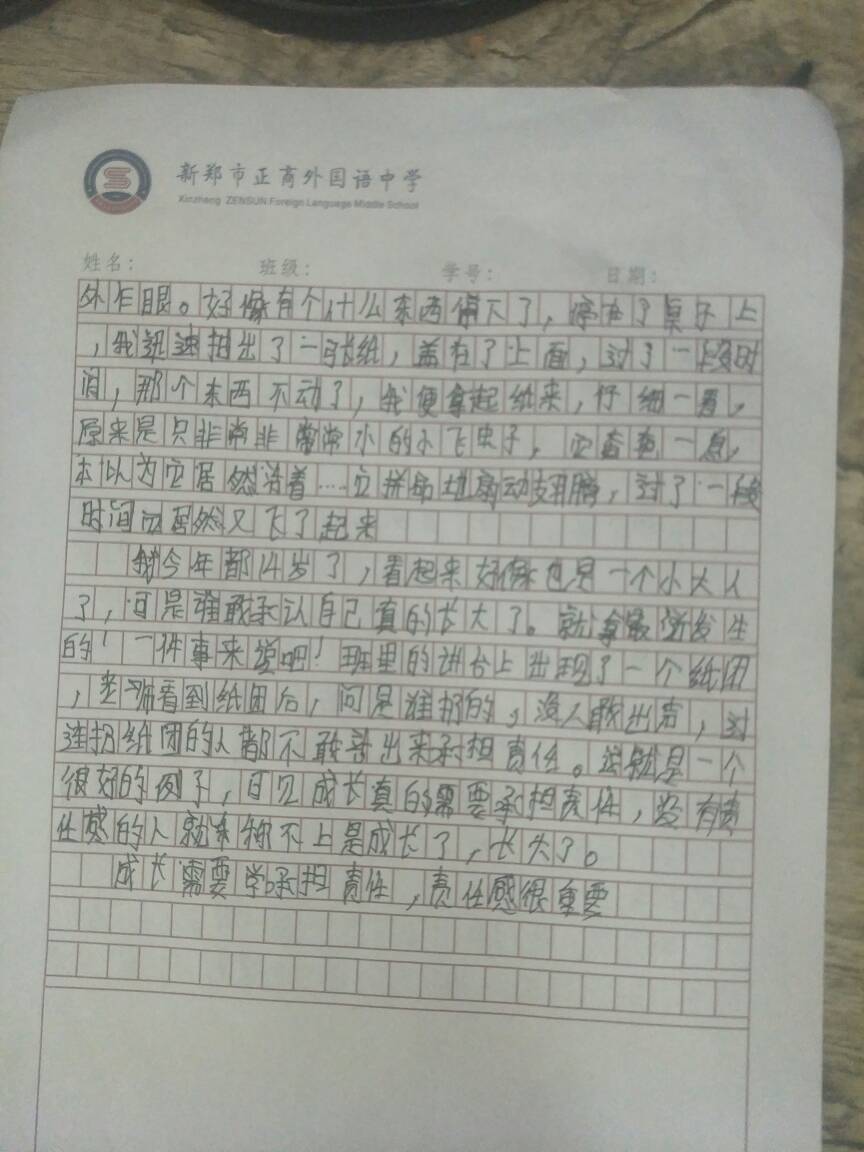 新郑市正商外国语中学
Xinzheng ZENSUN Foreign Language Middle School
姓名： 班级： 学号： 日期：
外乍眼。好像有个什么东西停下了，停在了桌子上
，我迅速抽出了一张纸，盖在了上面，过了一段时
间，那个东西不动了，我便拿起纸来，仔细一看，
原来是只非常非常常小的小飞虫子，一息，
本以为它居然活着……它拼命地扇动翅膀，过了一段
时间它居然又飞了起来
我今年都14岁了，看起来好像也是一个小大人
了，可是谁敢承认自己真的长大了。就拿最近发生
的一件事来说吧！班里的讲台上出现了一个纸团
，老师看到纸团后，问是谁扔的，没人敢出声，对
连扔纸团的人都不敢站出来承担责任。这就是一个
很好的例子，可见成长真的需要承担责任，没有责
任感的人就称不上是成长了，长大了。
成长需要学承担责任，责任感很重要